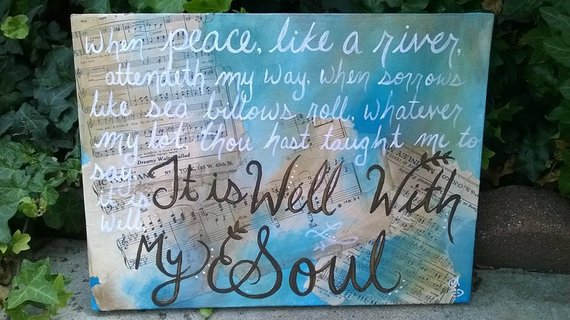 when peace, like a river,
attendeth my way, when sorrows
like sea billows roll, whatever
my lot, thou hast taught me to
say,
it is
well
It is Well With
My Soul